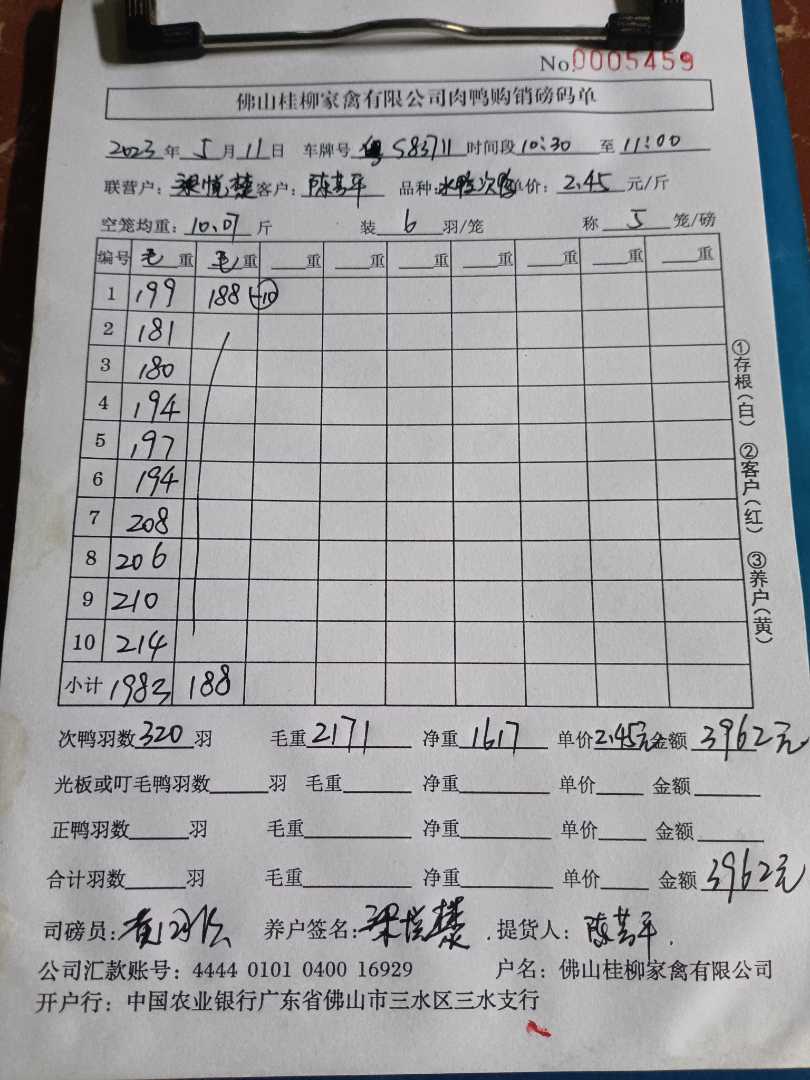 No.0005459
佛山桂柳家禽有限公司肉鸭购销磅码单
2023年5月11日 车牌号 粤S83711 时间段 10:30 至 11:00
联营户: 梁悦楚 客户: 陈芳平 品种: 水鸭次鸭 单价: 2.45 元/斤
空笼均重: 10.07 斤 装 6 羽/笼 称 5 笼/磅
编号 毛重 毛重 重 重 重 重 重 重 重
1 199 188 (-10)
2 181
3 180
4 194
5 197
6 194
7 208
8 206
9 210
10 214
小计 1983 188
次鸭羽数 320 羽 毛重 2171 净重 1617 单价 2.45元 金额 3962元
光板或叮毛鸭羽数 羽 毛重 净重 单价 金额
正鸭羽数 羽 毛重 净重 单价 金额
合计羽数 羽 毛重 净重 单价 金额 3962元
司磅员: 养户签名: 梁悦楚 提货人: 陈芳平
公司汇款账号: 4444 0101 0400 16929 户名: 佛山桂柳家禽有限公司
开户行: 中国农业银行广东省佛山市三水区三水支行
①存根(白) ②客户(红) ③养户(黄)